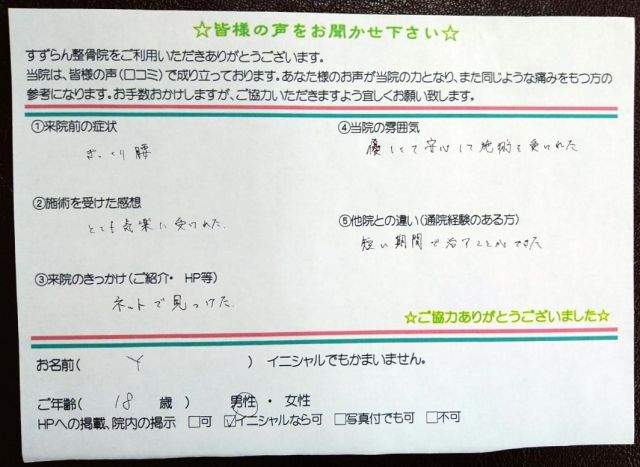 ☆皆様の声をお聞かせ下さい☆
すずらん整骨院をご利用いただきありがとうございます。
当院は、皆様の声(口コミ)で成り立っております。あなた様のお声が当院の力となり、また同じような痛みをもつ方の
参考になります。お手数おかけしますが、ご協力いただきますよう宜しくお願い致します。
①来院前の症状
ぎっくり腰
②施術を受けた感想
とても気楽に受けれた。
③来院のきっかけ(ご紹介・ HP等)
ネットで見つけた。
④当院の雰囲気
優しくて安心して施術を受けれた
⑤他院との違い(通院経験のある方)
短い期間で治すことができた
☆ご協力ありがとうございました☆
お名前( Y ) イニシャルでもかまいません。
ご年齢( 18 歳 ) 男性 ・ 女性
HPへの掲載、院内の掲示 □可 ☑イニシャルなら可 □写真付でも可 □不可